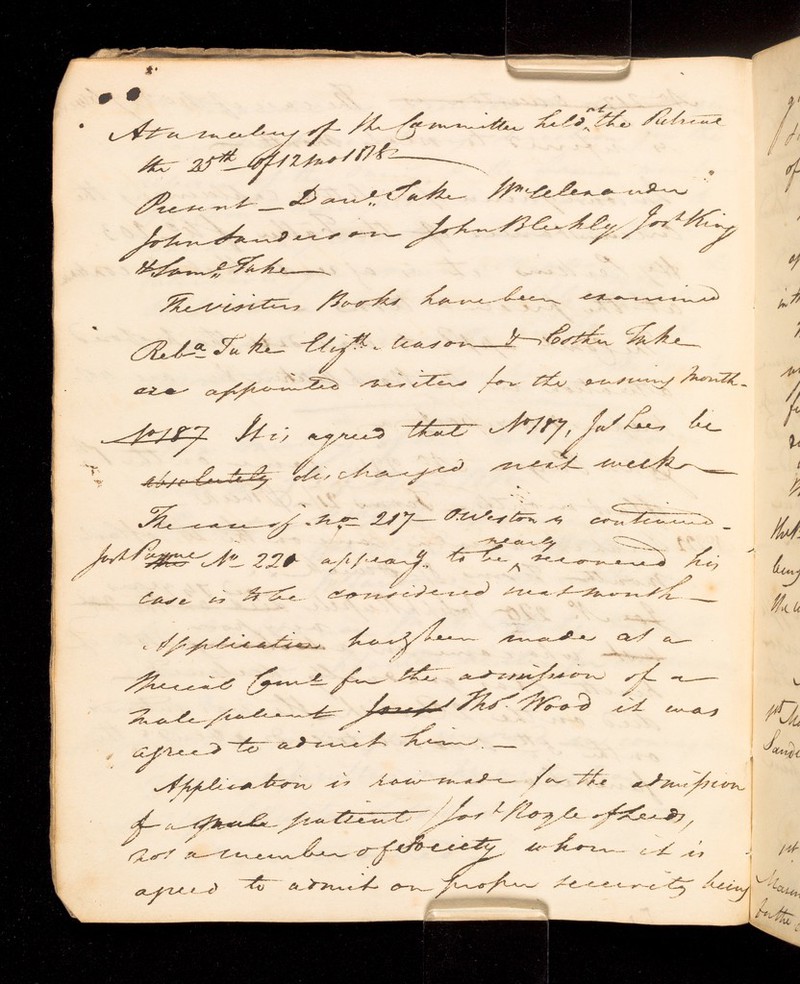 At a meeting of the Committee held at the Retreat
the 25th of 12 mo 1818
Present - Danl. Tuke Wm. Alexander
John Sanderson John Bleckly Josh King
& Saml. Tuke
The visiters Books have been examined
Reba. Tuke Elizth. Mason & Esther Tuke
are appointed visiters for the ensuing Month -
No 187 It is agreed that No 187, Jas Lees be
absolutely discharged next week -
The case of No 217 - O. Weston is continued -
Josh Payne No 220 appears to be nearly recovered his
case is to be considered next month -
Application having been made at a
special Comt. for the admission of a
male patient Joseph Thos. Wood it was
agreed to admit him. -
Application is now made for the admission
of a male patient Josh of Leeds,
not a member of Society whom it is
agreed to admit on proper security being